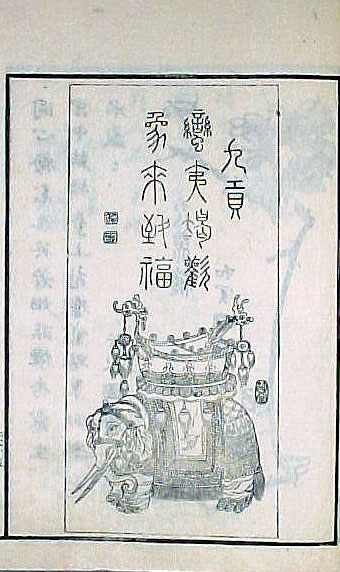 九貢
蠻夷竭歡
象來致福